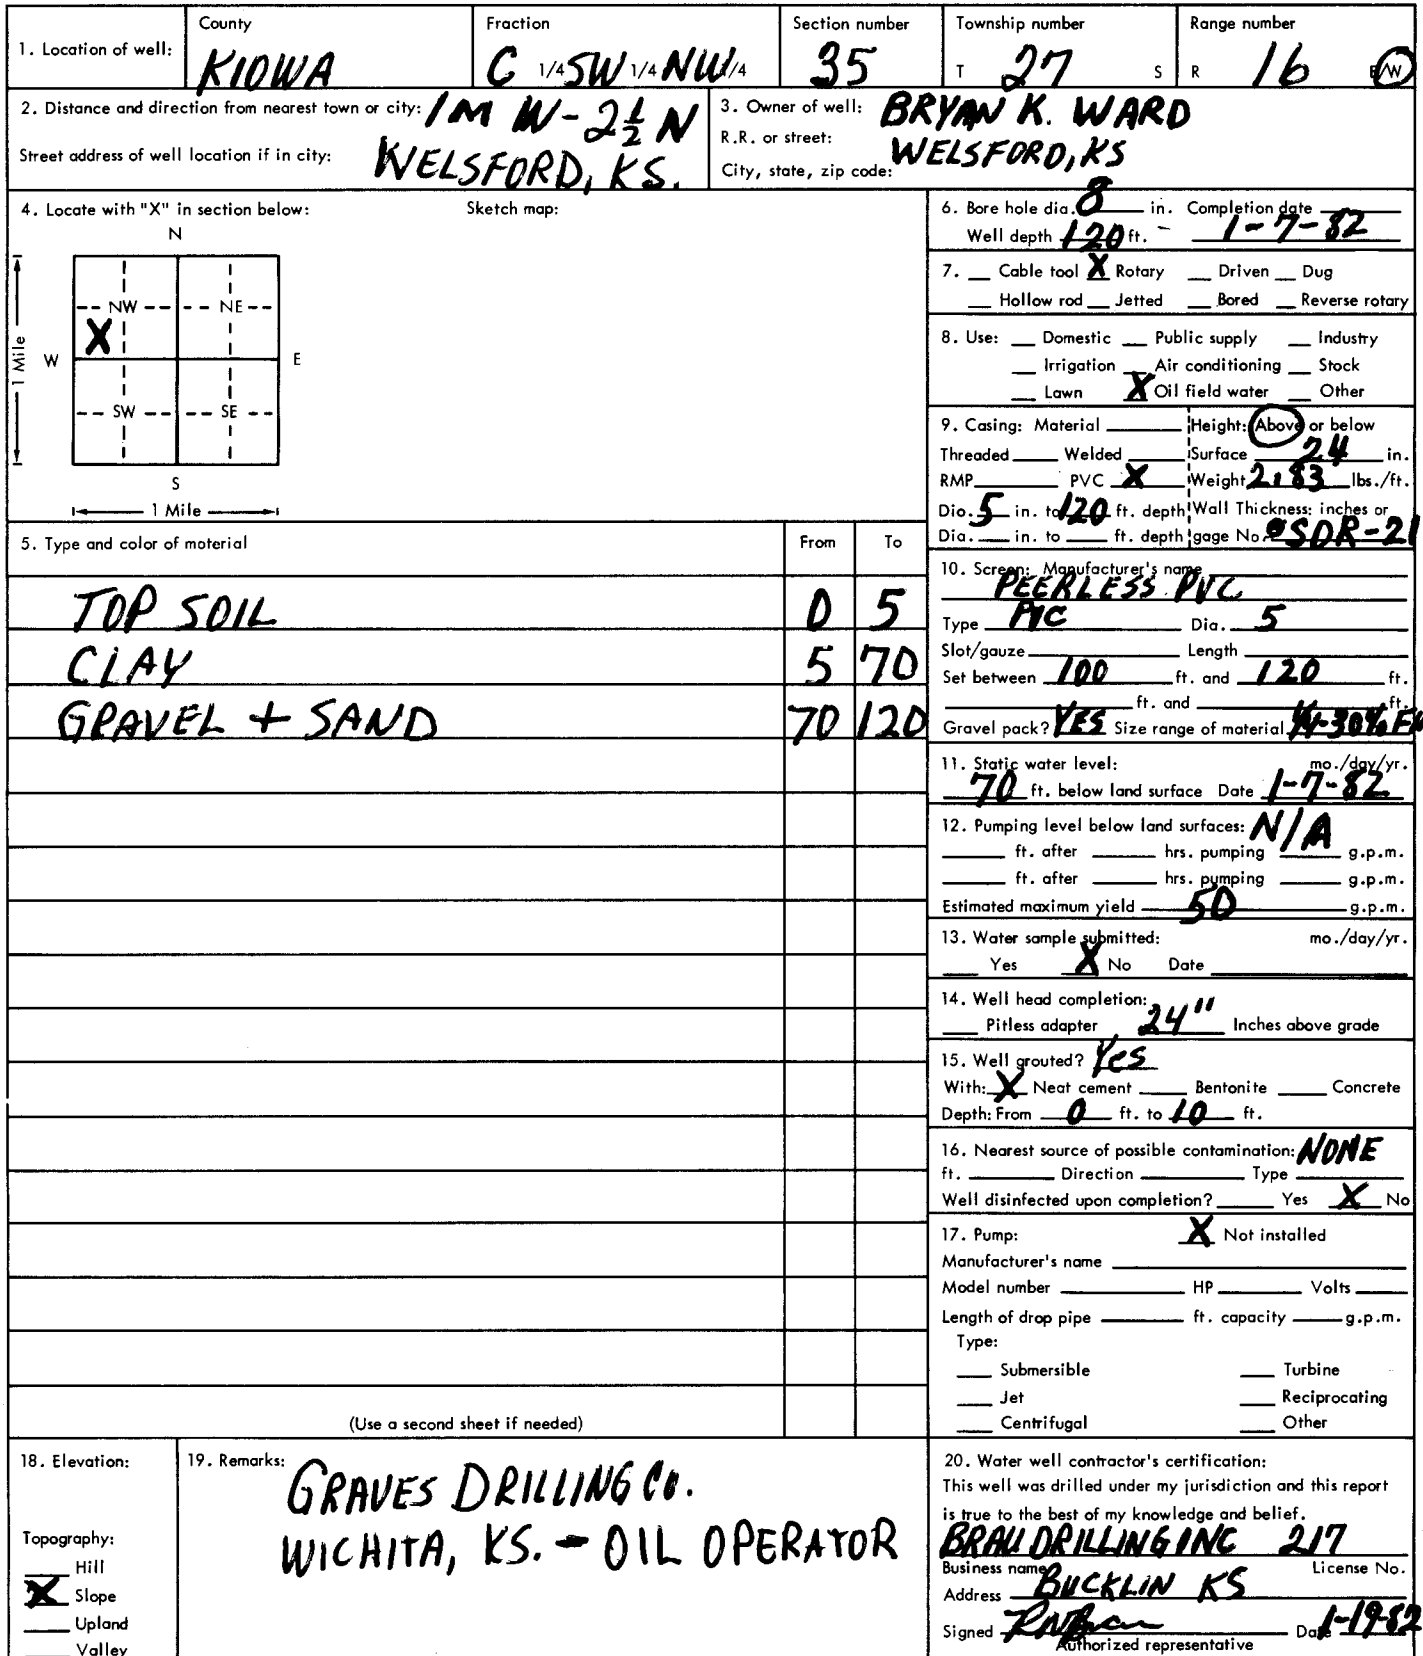 1. Location of well:
County
KIOWA
Fraction
C 1/4 SW 1/4 NW 1/4
Section number
35
Township number
T 27 S
Range number
R 16 E/W
2. Distance and direction from nearest town or city: 1M W-2½ N
Street address of well location if in city: WELSFORD, KS.
3. Owner of well: BRYAN K. WARD
R.R. or street:
City, state, zip code: WELSFORD, KS
4. Locate with "X" in section below:
Sketch map:
N
NW NE
X
1 Mile
W E
SW SE
S
1 Mile
5. Type and color of material From To
TOP SOIL 0 5
CLAY 5 70
GRAVEL + SAND 70 120
(Use a second sheet if needed)
6. Bore hole dia. 8 in. Completion date
Well depth 120 ft. 1-7-82
7. __ Cable tool X Rotary __ Driven __ Dug
__ Hollow rod __ Jetted __ Bored __ Reverse rotary
8. Use: __ Domestic __ Public supply __ Industry
__ Irrigation __ Air conditioning __ Stock
__ Lawn X Oil field water __ Other
9. Casing: Material ____ Height: Above or below
Threaded ____ Welded ____ Surface 24 in.
RMP ____ PVC X Weight 2.83 lbs./ft.
Dia. 5 in. to 120 ft. depth Wall Thickness: inches or
Dia. ___ in. to ___ ft. depth gage No. SDR-21
10. Screen: Manufacturer's name
PEERLESS PVC
Type PVC Dia. 5
Slot/gauze ____ Length ____
Set between 100 ft. and 120 ft.
____ ft. and ____ ft.
Gravel pack? YES Size range of material
11. Static water level: mo./day/yr.
70 ft. below land surface Date 1-7-82
12. Pumping level below land surfaces: N/A
____ ft. after ____ hrs. pumping ____ g.p.m.
____ ft. after ____ hrs. pumping ____ g.p.m.
Estimated maximum yield 50 g.p.m.
13. Water sample submitted: mo./day/yr.
__ Yes X No Date ____
14. Well head completion:
__ Pitless adapter 24" Inches above grade
15. Well grouted? Yes
With: X Neat cement ___ Bentonite ___ Concrete
Depth: From 0 ft. to 10 ft.
16. Nearest source of possible contamination: NONE
ft. ____ Direction ____ Type ____
Well disinfected upon completion? ____ Yes X No
17. Pump: X Not installed
Manufacturer's name ____
Model number ____ HP ____ Volts ____
Length of drop pipe ____ ft. capacity ____ g.p.m.
Type:
__ Submersible __ Turbine
__ Jet __ Reciprocating
__ Centrifugal __ Other
18. Elevation:
Topography:
__ Hill
X Slope
__ Upland
__ Valley
19. Remarks: GRAVES DRILLING CO.
WICHITA, KS. - OIL OPERATOR
20. Water well contractor's certification:
This well was drilled under my jurisdiction and this report
is true to the best of my knowledge and belief.
BRAU DRILLING INC 217
Business name License No.
Address BUCKLIN KS
Signed Date 1-19-82
Authorized representative